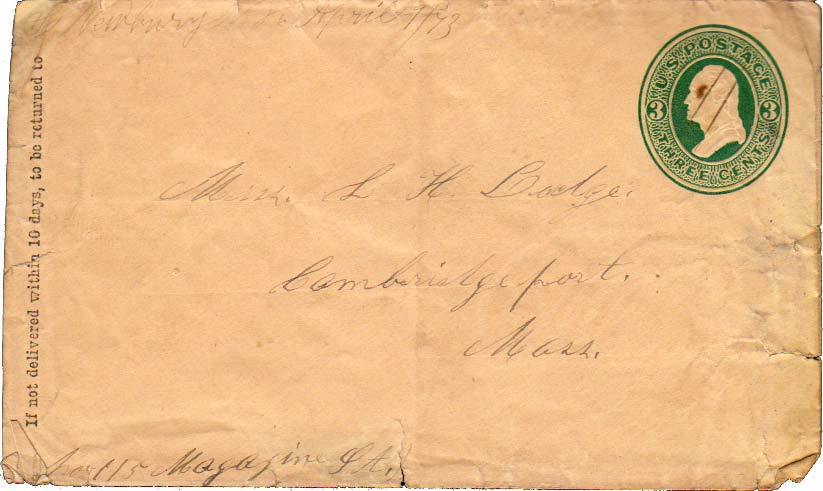 Newbury April 1/73
U.S. POSTAGE
3 3
THREE CENTS
If not delivered within 10 days, to be returned to
Miss. L H Dodge.
Cambridgeport.
Mass.
No 115 Magazine St.